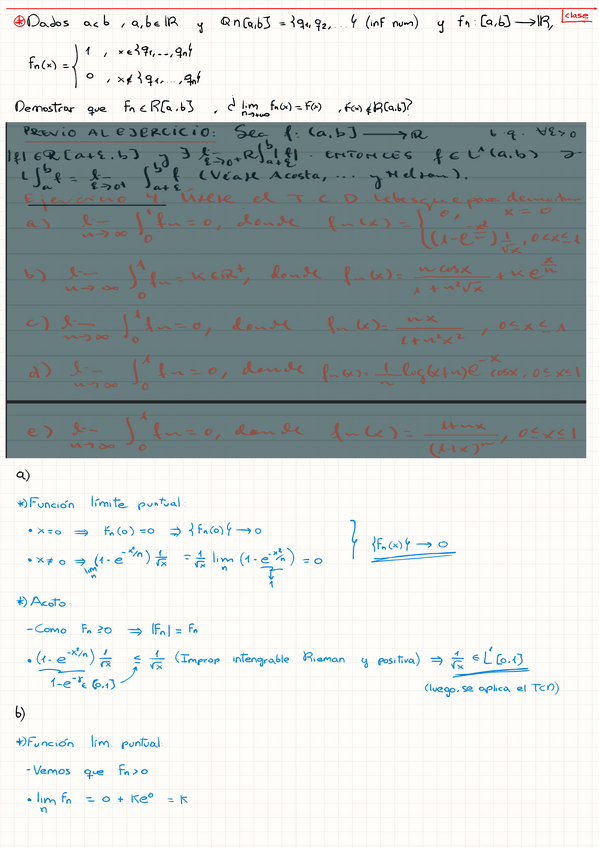 clase
⊛ Dados a<b, a,b∈ℝ y Q∩[a,b] = {q1,q2,...} (inf num) y fn: [a,b] → ℝ,
fn(x) = { 1, x∈{q1,...,qn}
0, x∉{q1,...,qn}
Demostrar que Fn ∈ R[a,b], ¿ lim n→∞ fn(x) = F(x), f(x)∉R[a,b]?
PREVIO AL EJERCICIO: Sea f: (a,b] → ℝ t.q. ∀ε>0
|f| ∈ R[a+ε,b] y ∃ lim ε→0+ R∫_{a+ε}^b |f|. ENTONCES f ∈ L¹(a,b) y
L∫_a^b f = lim ε→0+ ∫_{a+ε}^b f (Véase Acosta, ... y Melson).
Ejercicio 4 Úsese el T.C.D. Lebesgue para demostrar
a) lim n→∞ ∫_0^1 fn = 0, donde fn(x) = { 0, x=0
(1-e^{-x²/n}) 1/√x, 0<x≤1
b) lim n→∞ ∫_0^1 fn = K∈ℝ⁺, donde fn(x) = n cosx / (1+n²√x) + K e^{x/n}
c) lim n→∞ ∫_0^1 fn = 0, donde fn(x) = nx / (1+n²x²), 0≤x≤1
d) lim n→∞ ∫_0^1 fn = 0, donde fn(x) = 1/n log(x+n) e^{-x} cosx, 0≤x≤1
e) lim n→∞ ∫_0^1 fn = 0, donde fn(x) = (1+nx) / (1+x)^n, 0≤x≤1
a)
*) Función límite puntual:
• x=0 ⇒ Fn(0) = 0 ⇒ {Fn(0)} → 0
• x≠0 ⇒ lim n (1-e^{-x²/n}) 1/√x = 1/√x lim n (1-e^{-x²/n}) = 0
1
{Fn(x)} → 0
*) Acoto:
- Como Fn ≥ 0 ⇒ |Fn| = Fn
• (1-e^{-x²/n}) 1/√x ≤ 1/√x (Improp intengrable Rieman y positiva) ⇒ 1/√x ∈ L¹[0,1]
1-e^{-x} ∈ [0,1]
(luego se aplica el TCD)
b)
*) Función lim puntual
- Vemos que Fn>0
• lim n Fn = 0 + Ke⁰ = K